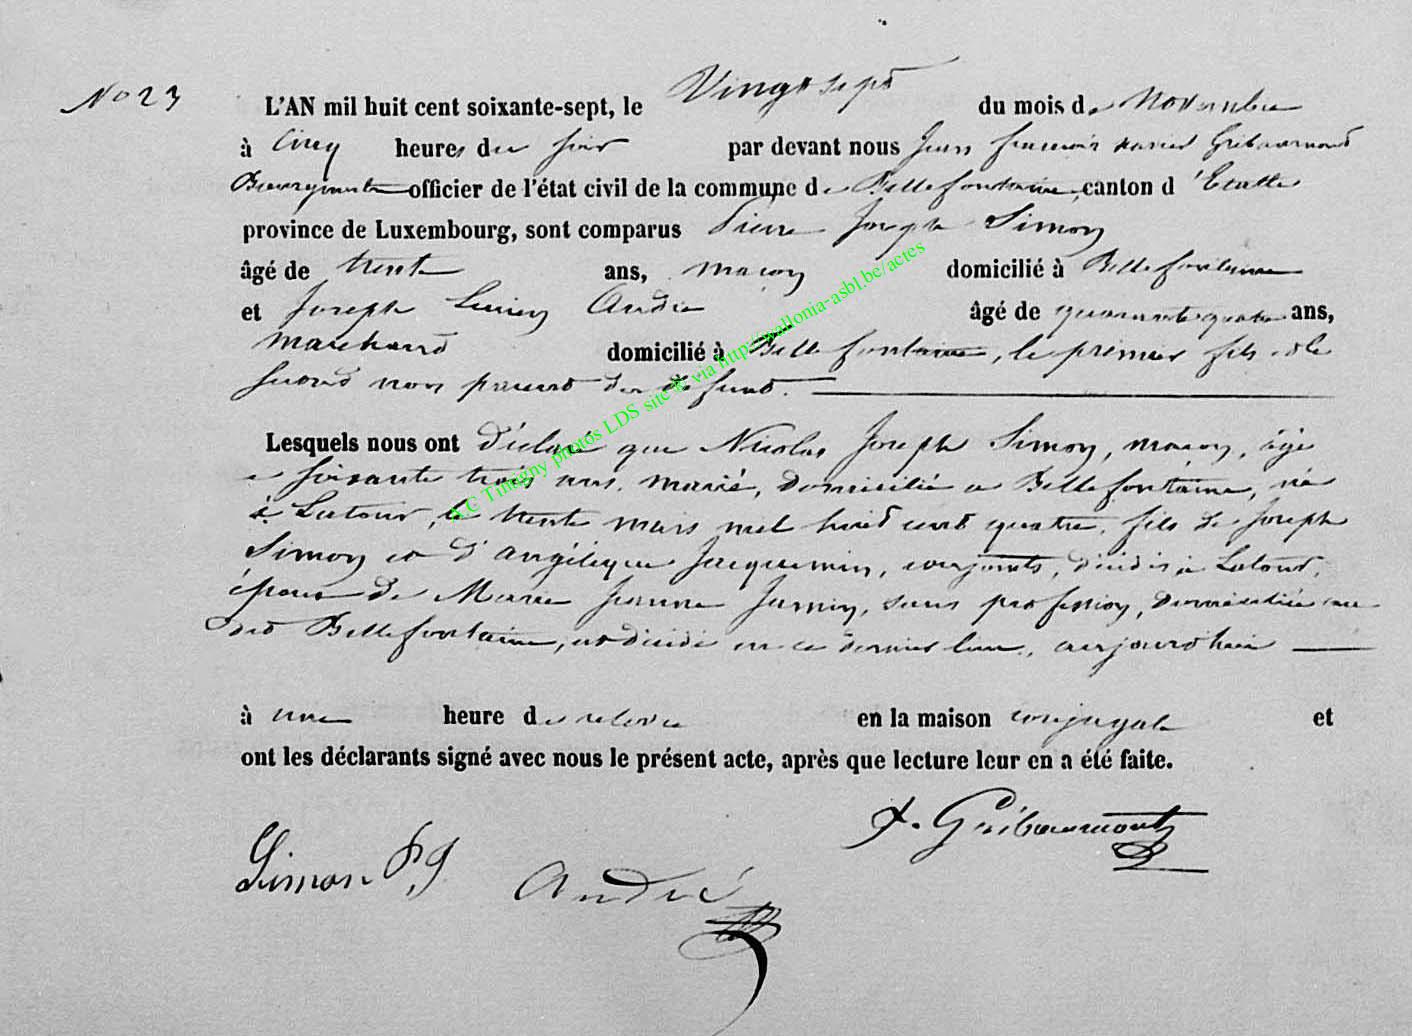 No 23
L'AN mil huit cent soixante-sept, le Vingt sept du mois de Novembre
à cinq heures du soir par devant nous Jean françois xavier Gribaumont
Bourgmestre officier de l'état civil de la commune de Bellefontaine, canton d'Etalle
province de Luxembourg, sont comparus Pierre Joseph Simon
âgé de trente ans, maçon domicilié à Bellefontaine
et Joseph Lucien André âgé de quarante quatre ans,
marchand domicilié à Bellefontaine, le premier fils et le
second non parent du défunt.
Lesquels nous ont déclaré que Nicolas Joseph Simon, maçon, âgé
de soixante trois ans, marié, domicilié à Bellefontaine, né
à Latour, le trente mars mil huit cent quatre, fils de Joseph
Simon et d'angélique Jacquemin, conjoints, décédés à Latour,
époux de Marie Jeanne Jamin, sans profession, domiciliée au
dit Bellefontaine, est décédé en ce dernier lieu, aujourd'hui
à une heure de relevée en la maison conjugale et
ont les déclarants signé avec nous le présent acte, après que lecture leur en a été faite.
x. Gribaumont
Simon PJ André
A.C Tintigny photos LDS site * via http://wallonia-asbl.be/actes